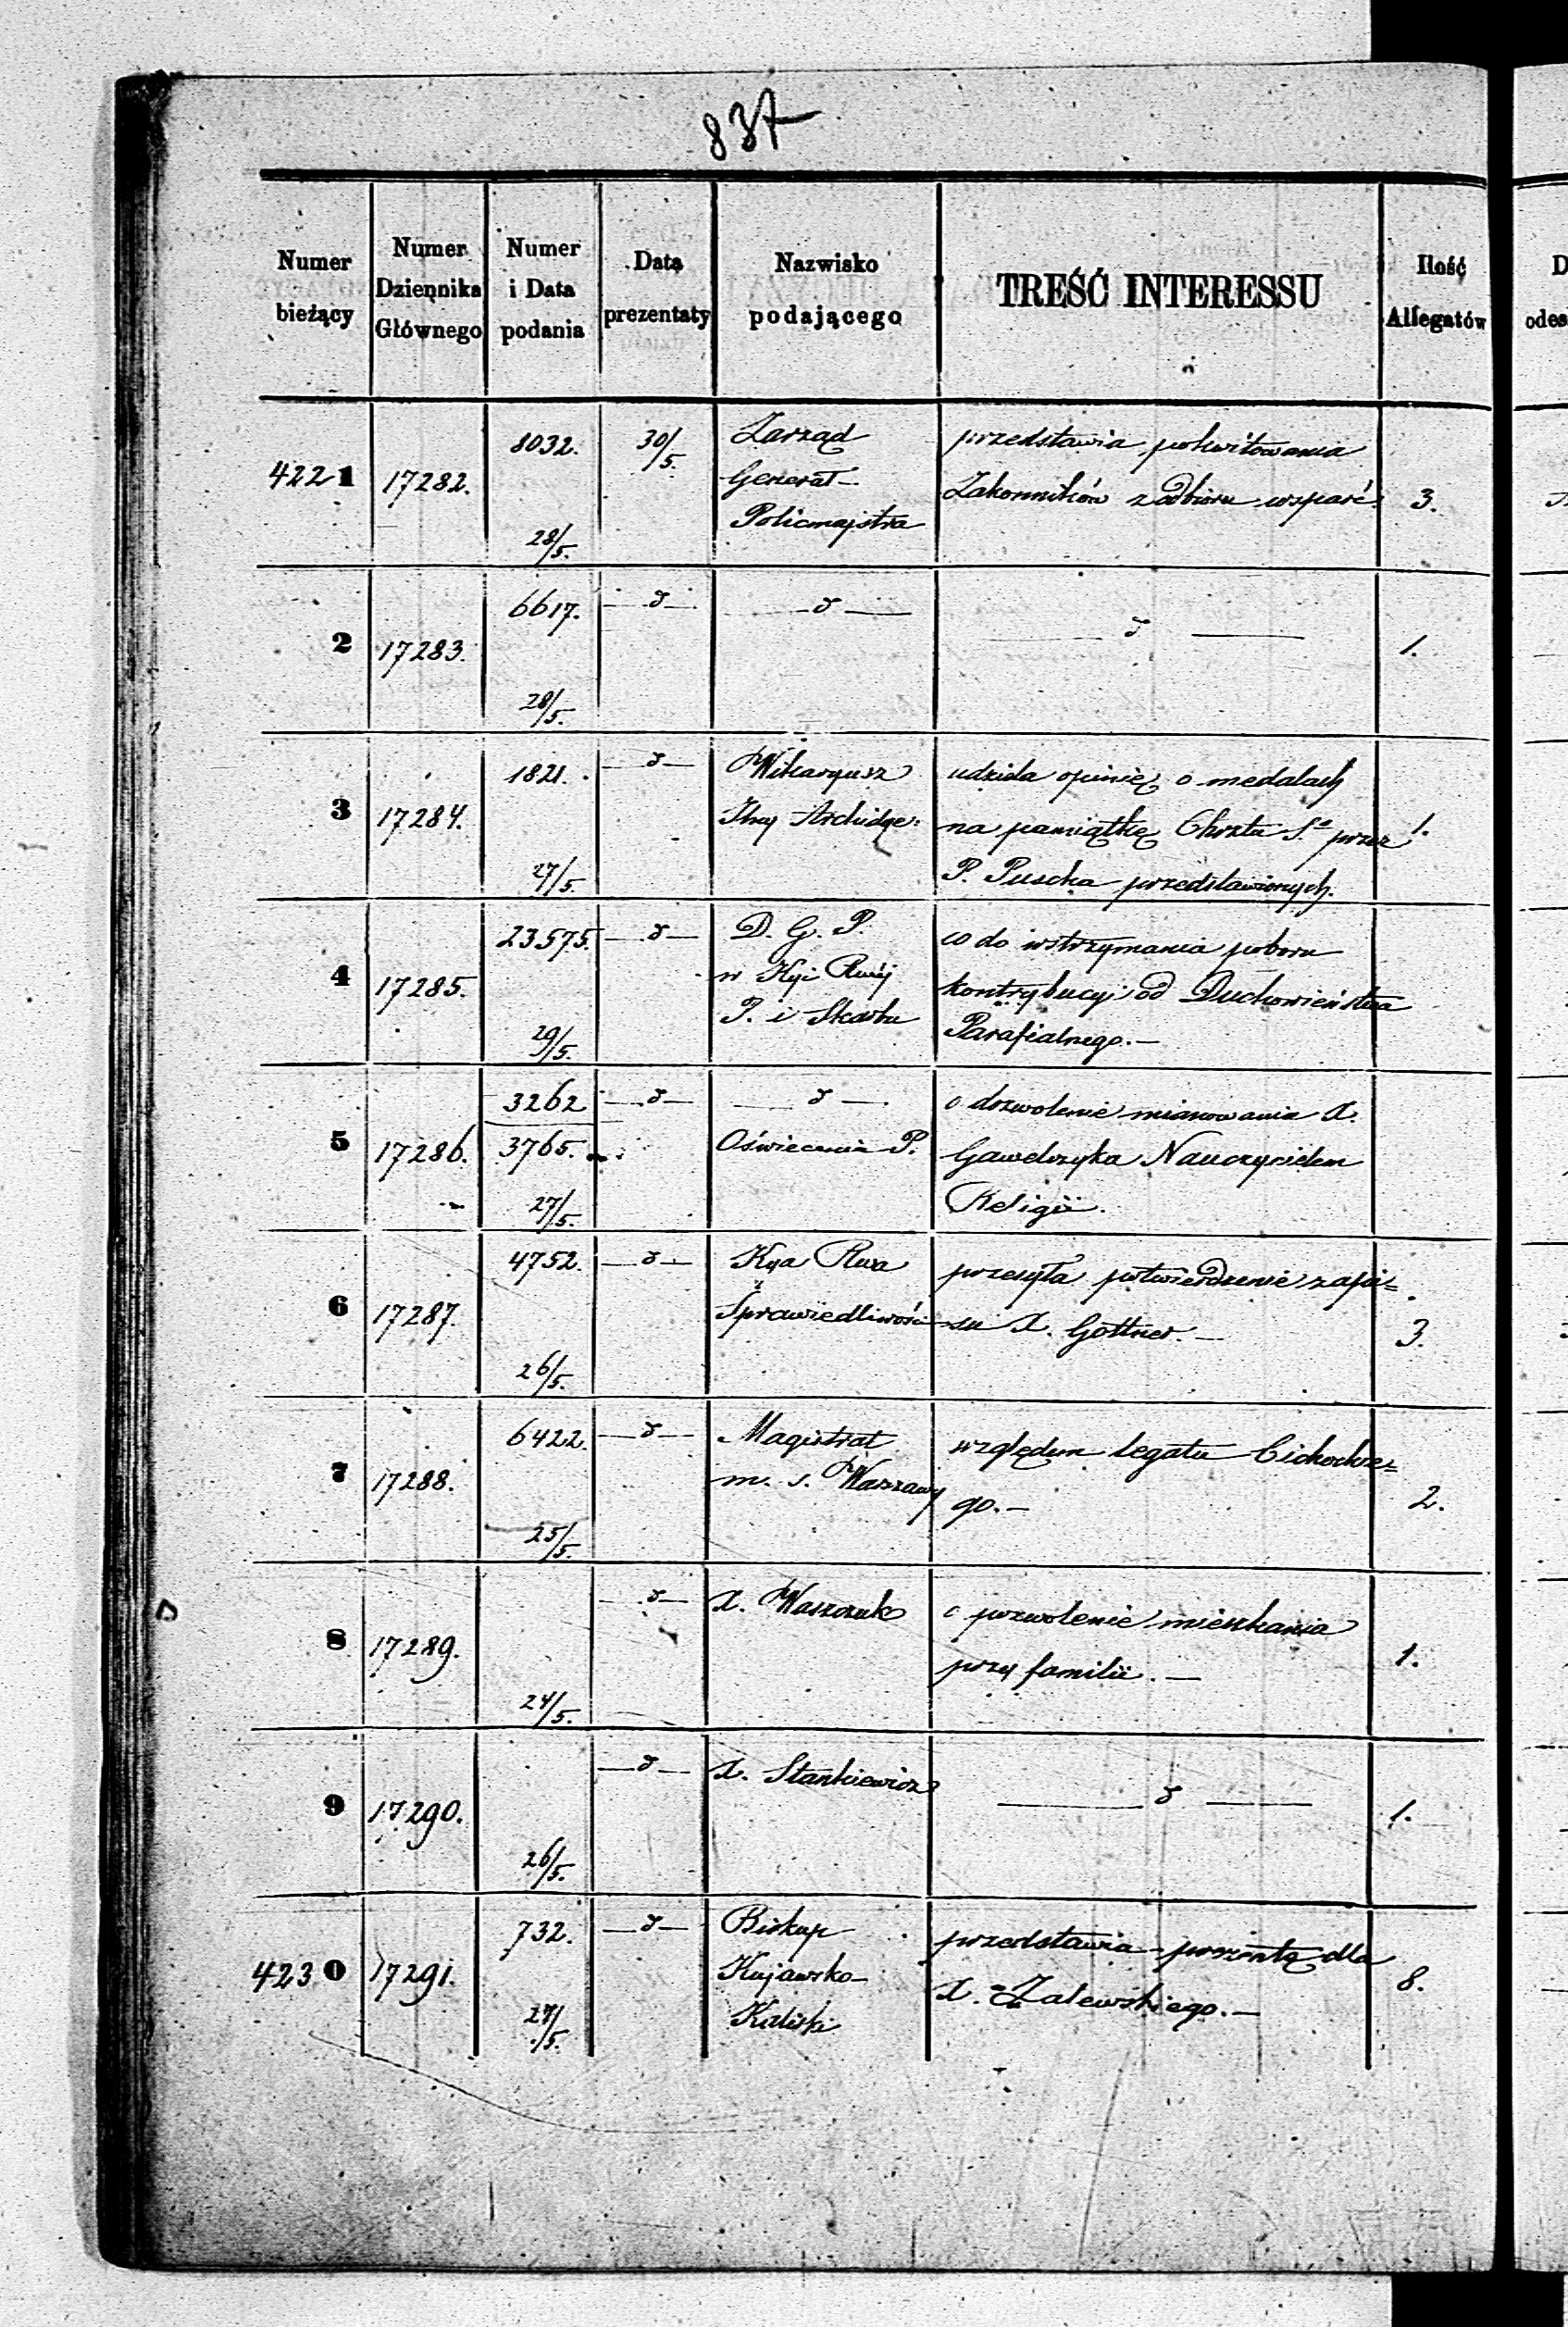 837
Numer bieżący
Numer Dziennika Głównego
Numer i Data podania
Data prezentaty
Nazwisko podającego
TREŚĆ INTERESSU
Ilość Allegatów
D
odes
4221 17282. 8032. 28/5. 30/5. Zarząd
Generał-
Policmajstra
przedstawia pokwitowania
Zakonników z odbioru wsparć. 3.
2 17283. 6617. 28/5. — d — — d — — d — 1.
3 17284. 1821. 27/5. — d — Wikaryusz
Archidye:
udziela opinię o medalach
na pamiątkę Chrztu S.º przez
P. Puscha przedstawionych. 1.
4 17285. 23575. 29/5. — d — D. G. P.
w Kyi Rwéj
P. i Skarbu
co do wstrzymania poboru
kontrybucyi od Duchowieństwa
Parafialnego.—
5 17286. 3262
3765. 27/5. — d — — d —
Oświecenia P.
o dozwolenie mianowania X.
Gawelczyka Nauczycielem
Religii.
6 17287. 4752. 26/5. — d — Kya Rwa
Sprawiedliwości
przesyła potwierdzenie zapi=
su X. Gottner.— 3.
7 17288. 6422. 25/5. — d — Magistrat
m. s. Warszawy
względem legatu
go.— 2.
8 17289. 24/5. — d — X. Waszczuk
o pozwolenie mieszkania
przy familii.— 1.
9 17290. 26/5. — d — X. Stankiewicz — d — 1.
4230 17291. 732. 27/5. — d — Biskup
Kujawsko-
Kaliski
przedstawia prezentę dla
X. Zalewskiego.— 8.